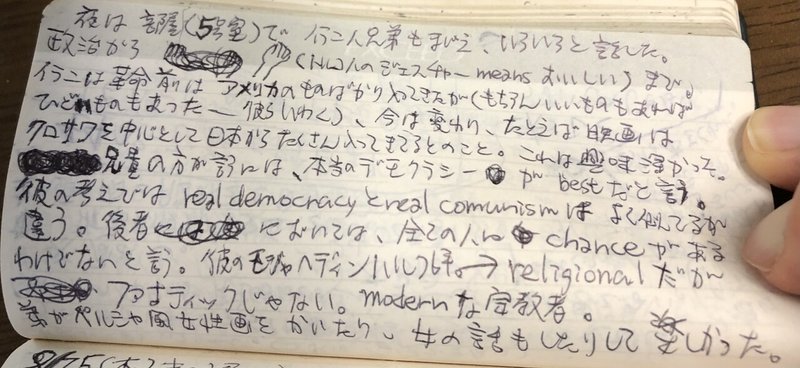 夜は部屋(5号室)でイラン人兄弟もまじえ、いろいろと話した。
政治から (人のジェスチャー means おいしい)まで。
イランは革命前はアメリカのものばかり入ってきたが(もちろんいいものもあれば
ひどいものもあった — 彼らいわく)、今は変わり、たとえば映画は
クロサワを中心として日本からたくさん入ってきてるとのこと。これは興味深かった。
兄貴の方が言うには、本当のデモクラシーが bestだと言う。
彼の考えでは real democracyとreal comunismは よく似てるが
違う。後者においては、全ての人に chanceがある
わけでないと言う。彼のモジャヘディン → religionalだが
ファナティックじゃない。modernな宗教者。
弟がペルシャ風女性画をかいたり、女の話もしたりして楽しかった。
8/25(木)